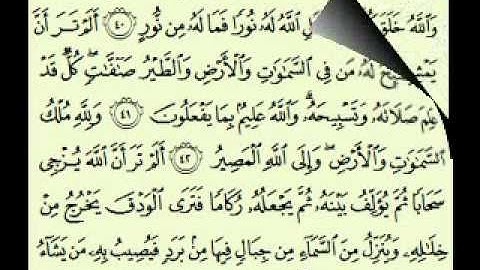 وَٱللَّهُ خَلَقَ ٱللَّهُ لَهُۥ نُورًا فَمَا لَهُۥ مِن نُّورٍ ﴿٤٠﴾ أَلَمْ تَرَ أَنَّ
لَهُۥ مَن فِي ٱلسَّمَٰوَٰتِ وَٱلْأَرْضِ وَٱلطَّيْرُ صَٰٓفَّٰتٍۖ كُلٌّ قَدْ
عَلِمَ صَلَاتَهُۥ وَتَسْبِيحَهُۥۗ وَٱللَّهُ عَلِيمٌۢ بِمَا يَفْعَلُونَ ﴿٤١﴾ وَلِلَّهِ مُلْكُ
ٱلسَّمَٰوَٰتِ وَٱلْأَرْضِۖ وَإِلَى ٱللَّهِ ٱلْمَصِيرُ ﴿٤٢﴾ أَلَمْ تَرَ أَنَّ ٱللَّهَ يُزْجِي
سَحَابًا ثُمَّ يُؤَلِّفُ بَيْنَهُۥ ثُمَّ يَجْعَلُهُۥ رُكَامًا فَتَرَى ٱلْوَدْقَ يَخْرُجُ مِنْ
خِلَٰلِهِۦ وَيُنَزِّلُ مِنَ ٱلسَّمَآءِ مِن جِبَالٍ فِيهَا مِنۢ بَرَدٍ فَيُصِيبُ بِهِۦ مَن يَشَآءُ